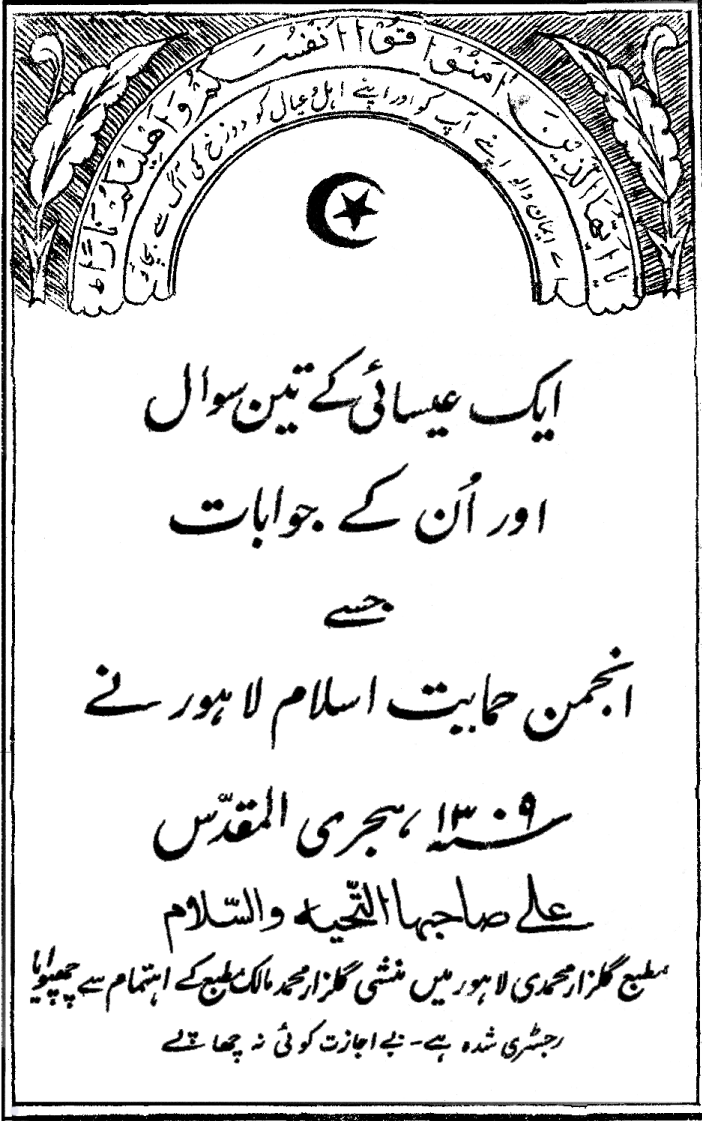 یا ایھا الذین امنوا قوا انفسکم و اھلیکم نارا
اے ایمان والو اپنے آپ کو اور اپنے اہل و عیال کو دوزخ کی آگ سے بچاؤ
ایک عیسائی کے تین سوال
اور اُن کے جوابات
جسے
انجمن حمایت اسلام لاہور نے
سنہ ۱۳۰۹ ہجری المقدّس
علےٰ صاحبہا التّحیہ والسّلام
مطبع گلزار محمدی لاہور میں منشی گلزار محمد مالک مطبع کے اہتمام سے چھپوایا
رجسٹری شدہ ہے۔ بے اجازت کوئی نہ چھاپے